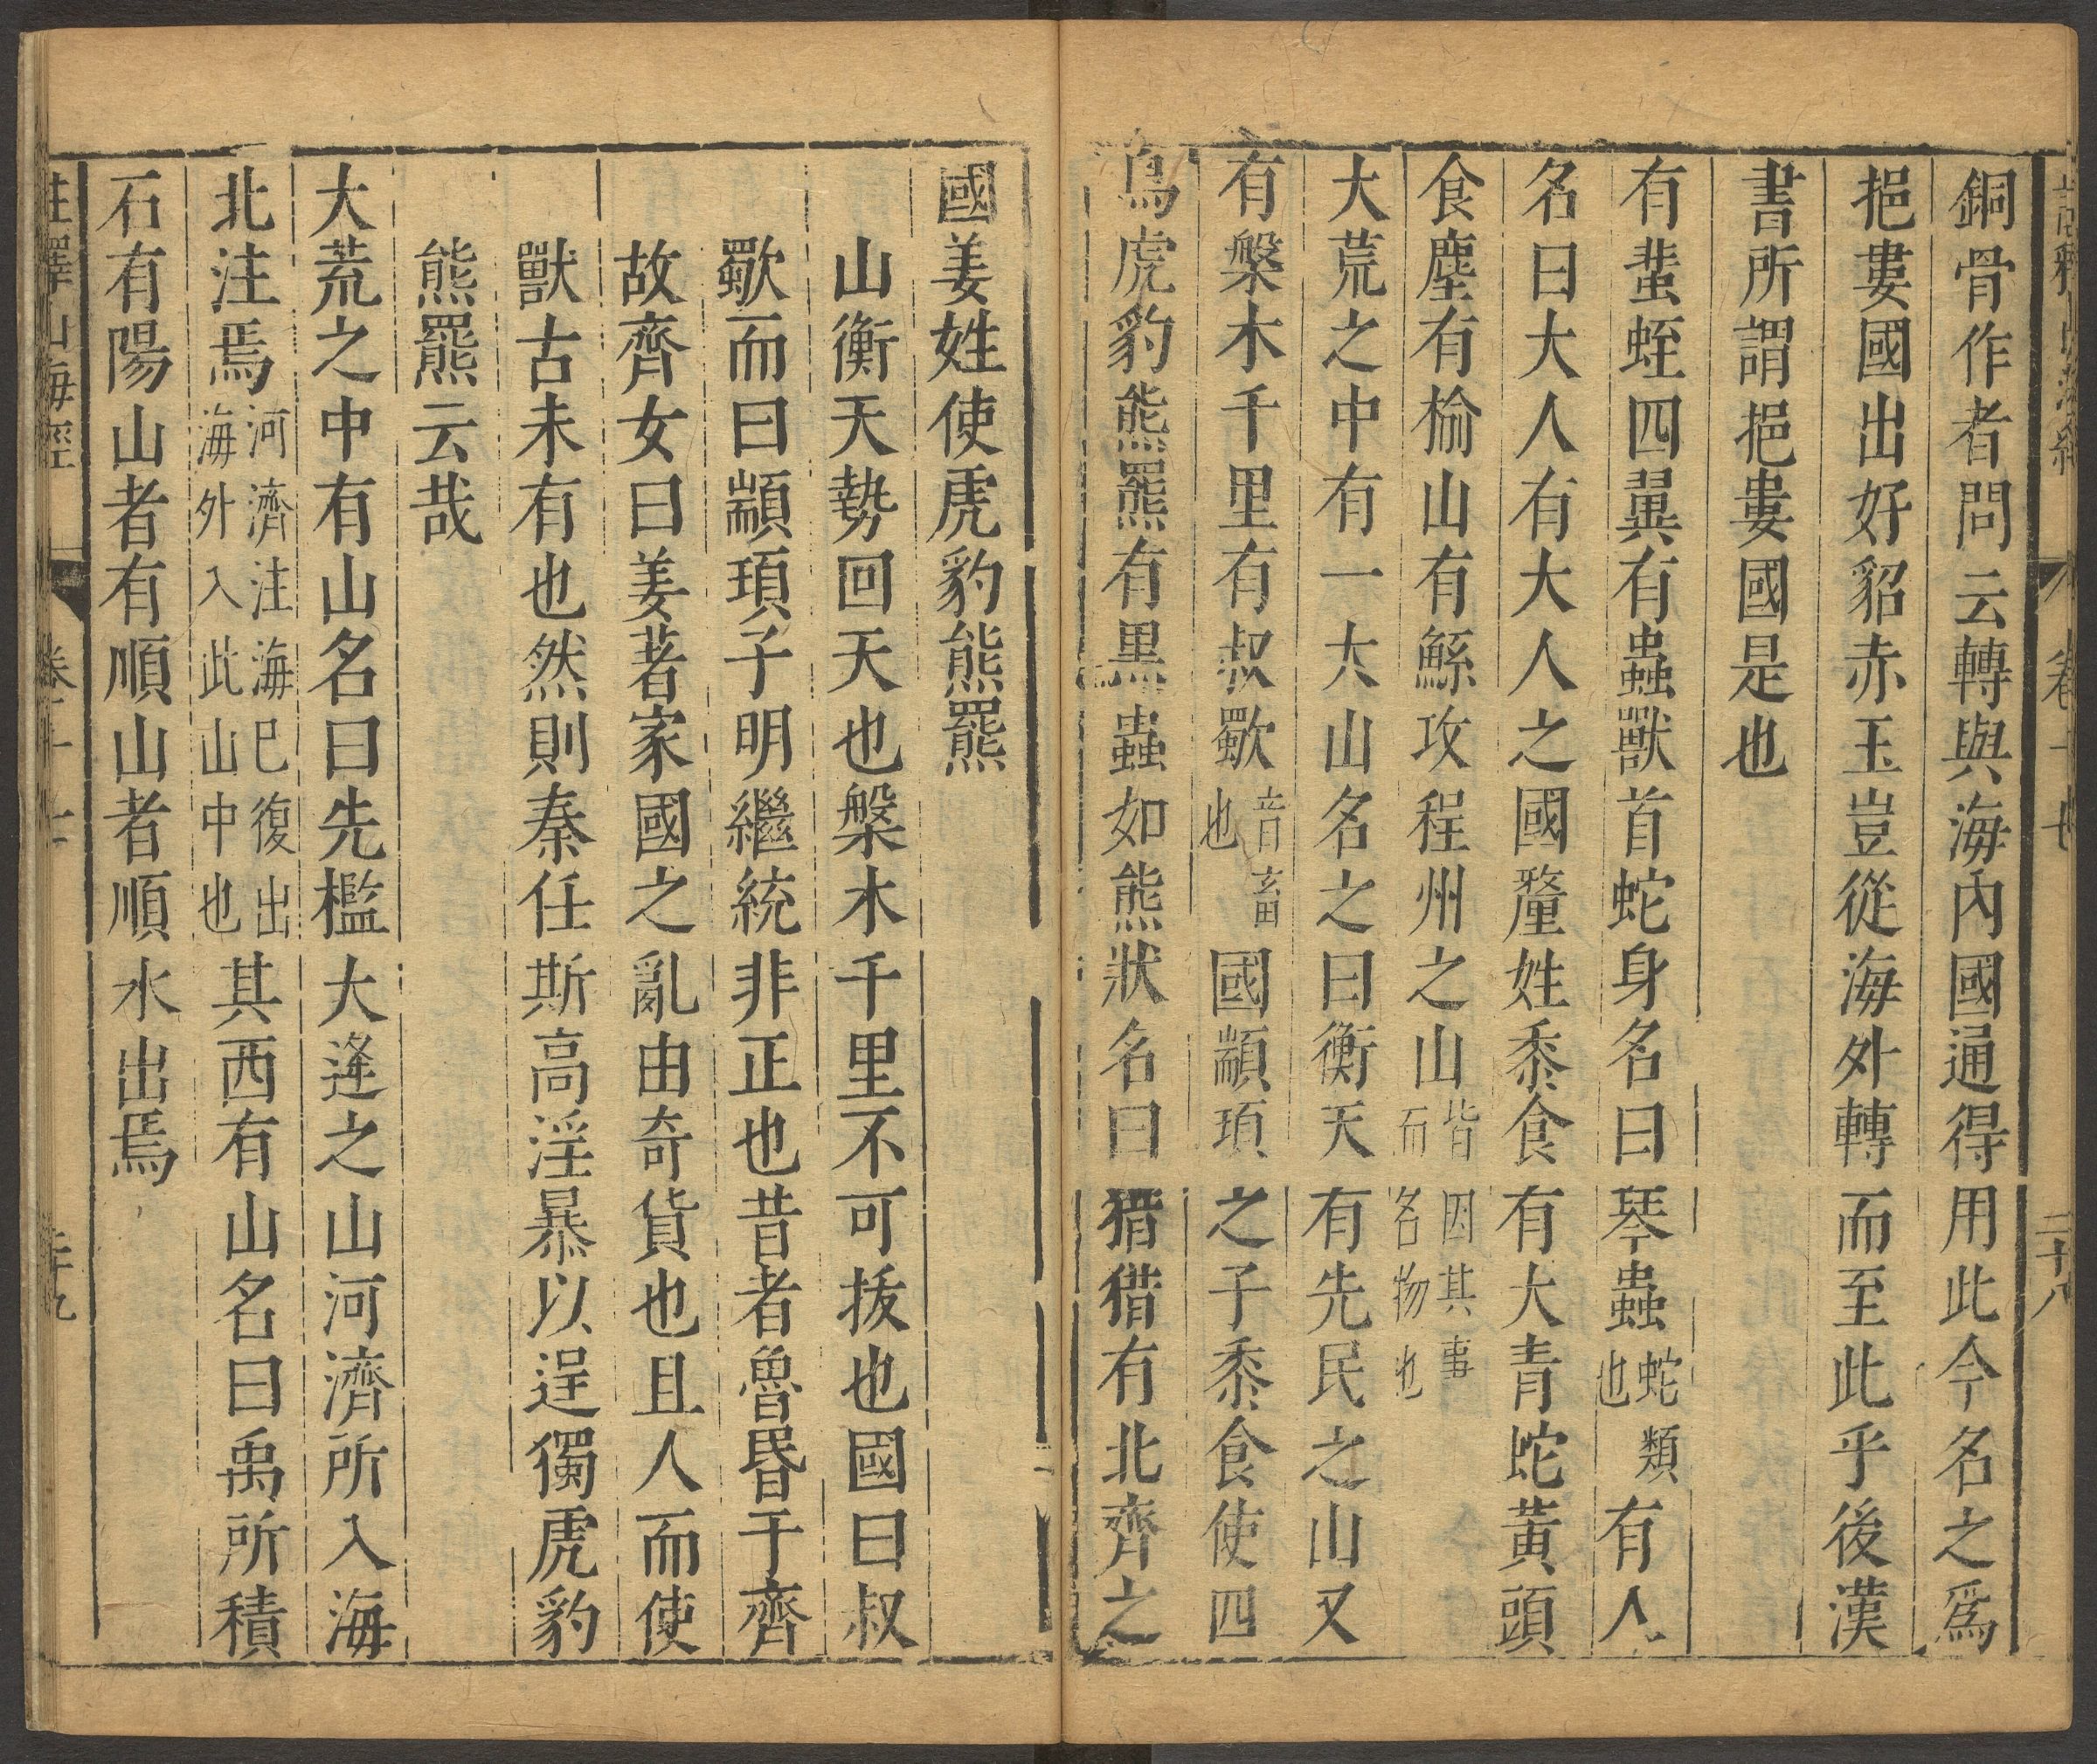 銅骨作者問云轉與海內國通得用此今名之爲
挹婁國出好貂赤玉豈從海外轉而至此乎後漢
書所謂挹婁國是也
有蜚蛭四翼有蟲獸首蛇身名曰琴蟲蛇類也有人
名曰大人有大人之國釐姓黍食有大青蛇黃頭
食麈有榆山有鯀攻程州之山皆因其事而名物也
大荒之中有一大山名之曰衡天有先民之山又
有槃木千里有叔歜音畜也國顓頊之子黍食使四
鳥虎豹熊羆有黑蟲如熊狀名曰猎猎有北齊之
國姜姓使虎豹熊羆
山衡天勢回天也槃木千里不可拔也國曰叔
歜而曰顓頊子明繼統非正也昔者魯昏于齊
故齊女曰姜著家國之亂由奇貨也且人而使
獸古未有也然則秦任斯高淫暴以逞獨虎豹
熊羆云哉
大荒之中有山名曰先檻大逢之山河濟所入海
北注焉河濟注海已復出海外入此山中也其西有山名曰禹所積
石有陽山者有順山者順水出焉
山海經
卷十七
二十九
卷十七
二十八